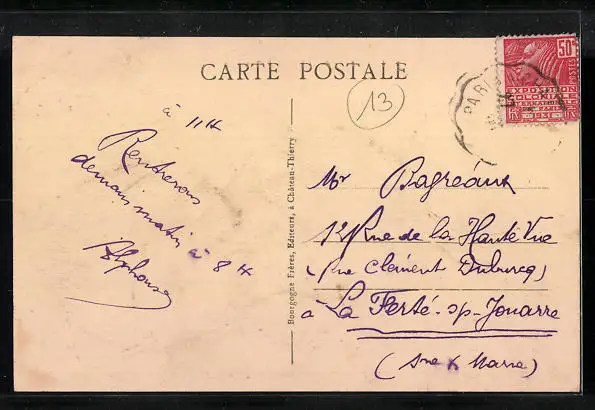 CARTE POSTALE
13
à 11 H
Rentrerons
demain matin
à 8 H
Alphonse
Bourgogne Frères, Editeurs, à Château-Thierry
PARIS
50c
POSTES
EXPOSITION
COLONIALE
INTERNATIONALE
PARIS
1931
Mr Bagréaux
12 Rue de la Haute Vue
(Rue Clément Duburcq)
à La Ferté-sp-Jouarre
(Sne & Marne)